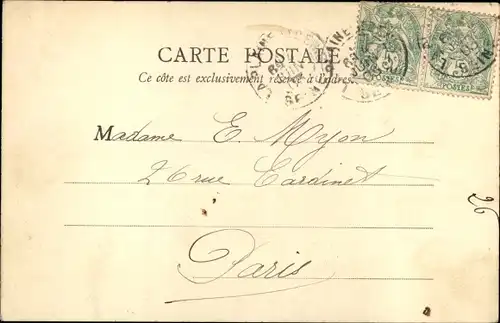 CARTE POSTALE
Ce côté est exclusivement réservé à l'adresse
Madame E. Myon
26 rue Cardinet
Paris
26